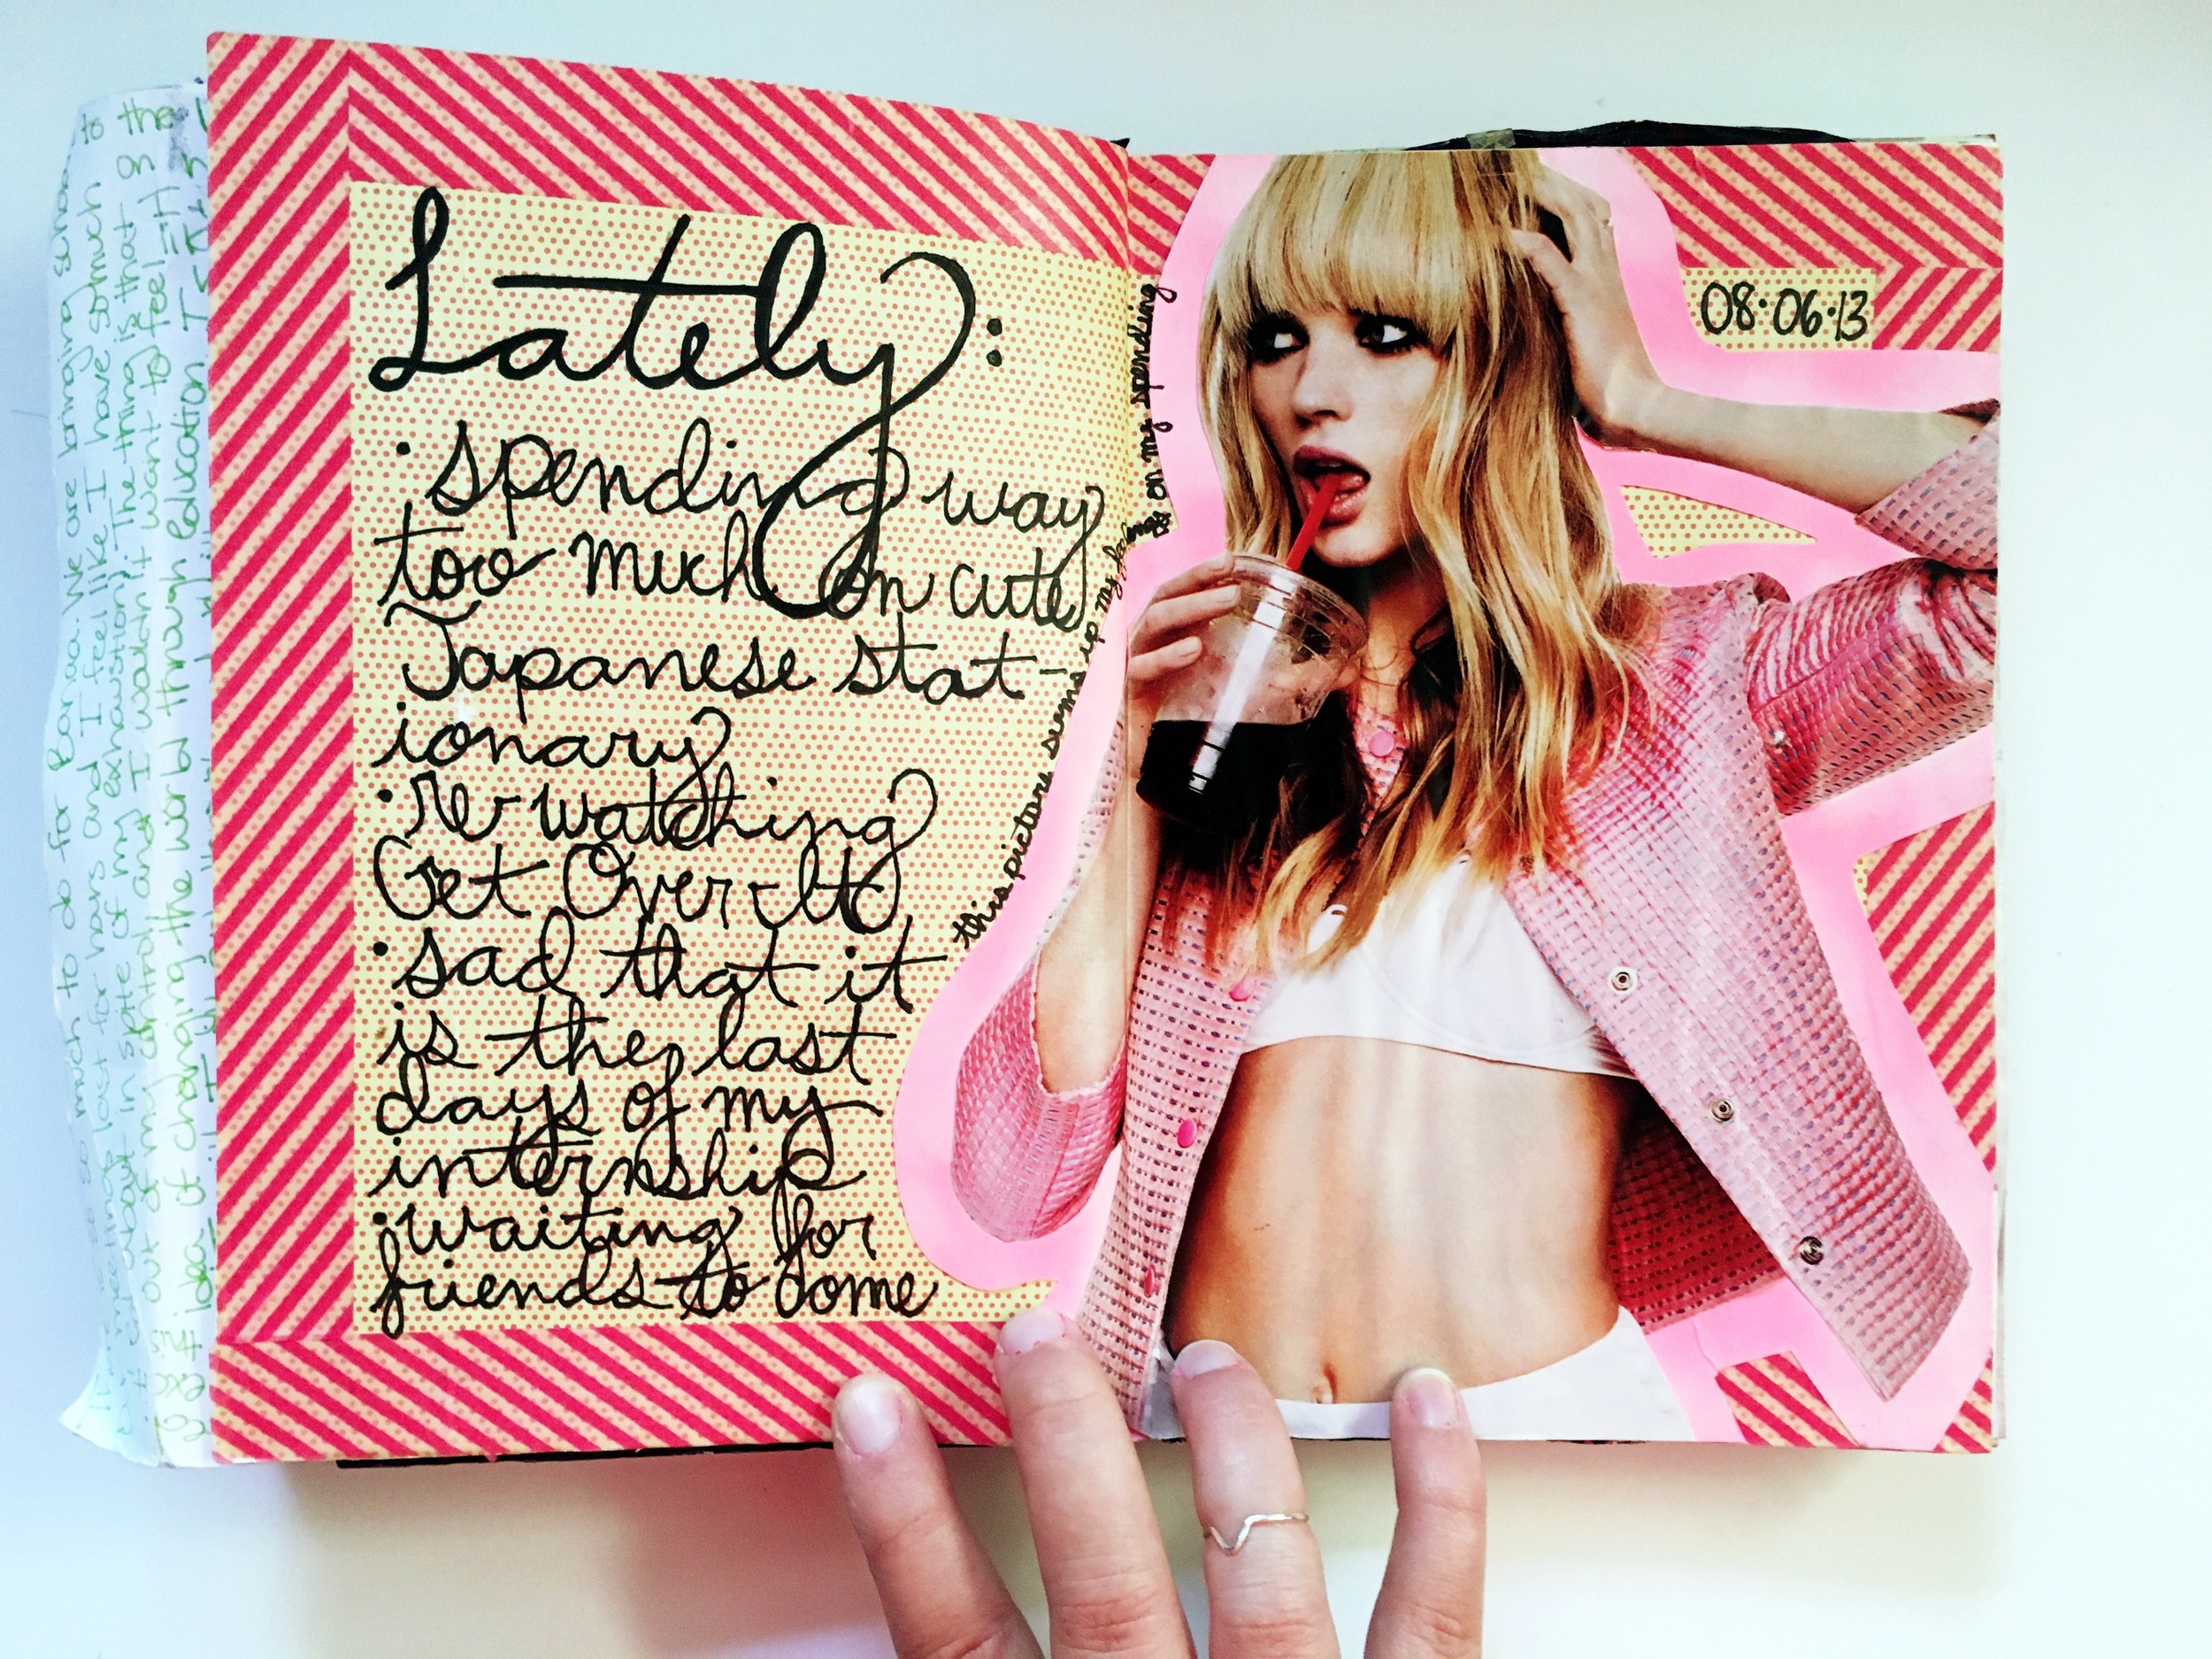 Lately:
• spending way
too much on cute
Japanese stat-
ionary
• re-watching
Get Over It
• sad that it
is the last
days of my
internship
• waiting for
friends to come
this picture sums up my feelings on my spending
08•06•13
to do for Bonaa. We are bringing school
last for hours and I feel like I have so much to
in spite of my exhaustion. The thing is that
out of my control and I wouldn't want to feel
idea of changing the world through education. I